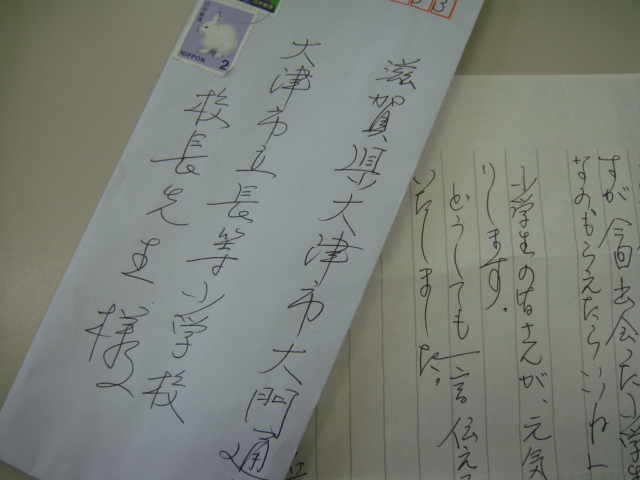 滋賀県大津市大門通
大津市立長等小学校
校長先生様
NIPPON 2
3 3
すが今回出会った小学生
なのもらえたらいいねと
小学生の皆さんが、元気
りします。
どうしても一言伝え
いたしました。